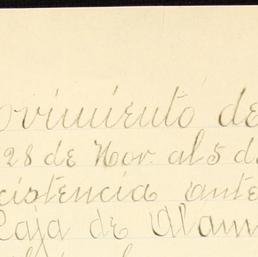 ovimiento de
28 de Nov. al 5 d
cistencia ante
Caja de Alam